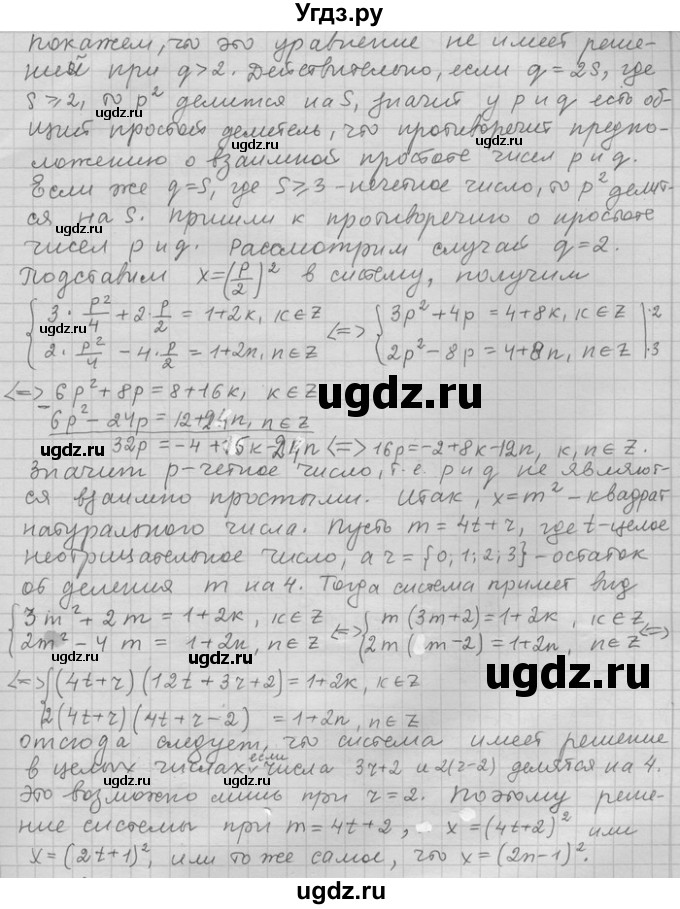 Угдз.ру
покажем, что это уравнение не имеет реше-
ний при q>2. Действительно, если q=2S, где
S⩾2, то p² делится на S, значит у p и q есть об-
щий простой делитель, что противоречит предпо-
ложению о взаимной простоте чисел p и q.
Если же q=S, где S⩾3 - нечетное число, то p² делит-
ся на S. Пришли к противоречию о простоте
чисел p и q. Рассмотрим случай q=2.
Подставим x=(p/2)² в систему, получим
{ 3·p²/4+2·p/2=1+2k, k∈Z <=> { 3p²+4p=4+8k, k∈Z |·2
2·p²/4-4·p/2=1+2n, n∈Z 2p²-8p=4+8n, n∈Z |·3
<=> 6p²+8p=8+16k, k∈Z
- 6p²-24p=12+24n, n∈Z
32p=-4+16k-24n <=> 16p=-2+8k-12n, k, n∈Z.
Значит p-четное число, т.е. p и q не являют-
ся взаимно простыми. Итак, x=m² - квадрат
натурального числа. Пусть m=4t+r, где t-целое
неотрицательное число, а r={0;1;2;3} - остаток
от деления m на 4. Тогда система примет вид
{ 3m²+2m=1+2k, k∈Z <=> { m(3m+2)=1+2k, k∈Z <=>
2m²-4m=1+2n, n∈Z 2m(m-2)=1+2n, n∈Z
<=> { (4t+r)(12t+3r+2)=1+2k, k∈Z
2(4t+r)(4t+r-2)=1+2n, n∈Z
отсюда следует, что система имеет решение
в целых числах, если числа 3r+2 и 2(r-2) делятся на 4.
Это возможно лишь при r=2. Поэтому реше-
ние системы при m=4t+2, x=(4t+2)² или
x=(2t+1)², или то же самое, что x=(2n-1)².
ugdz.ru